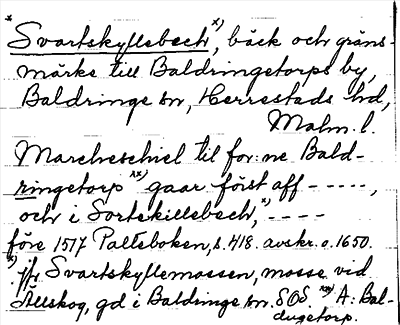 * Svartskyllebech, x) bäck och gräns-
märke till Baldringetorps by,
Baldringe sn, Herrestads hd,
Malm. l.
Marcheschiel til for:ne Bald-
ringetorp xx) gaar först aff - - - - -,
och i Sortskillebech, x) - - - -
före 1517 Palteboken, s. 418. avskr. o. 1650.
x) jfr Svartskyllemossen, mosse vid
Ållskog, gd i Baldringe sn. SOS. xx) A: Bal-
dugetorp.